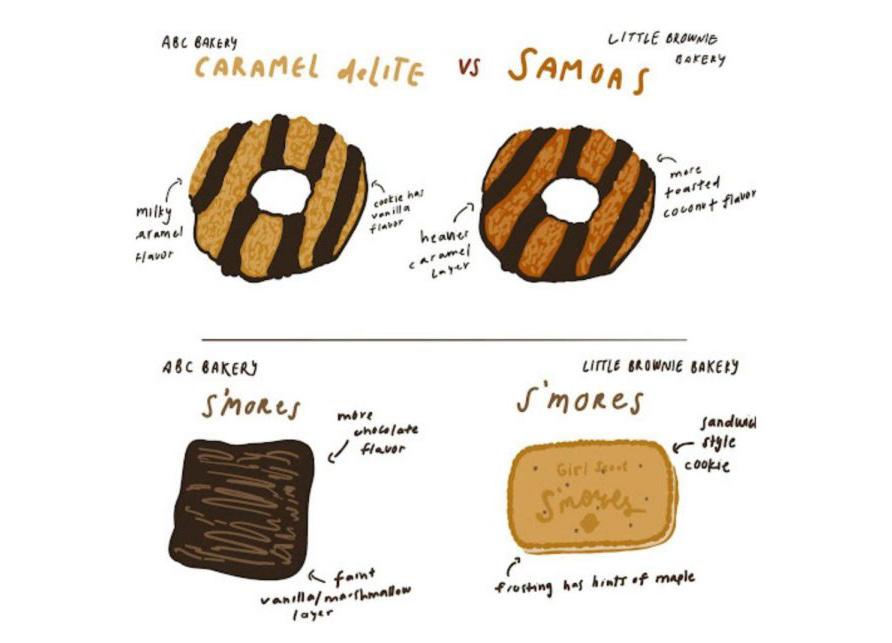 ABC BAKERY
CARAMEL deLITE
VS
LITTLE BROWNIE
BAKERY
SAMOAS
milky
aramel
flavor
cookie has
vanilla
flavor
heavier
caramel
layer
more
toasted
coconut flavor
ABC BAKERY
S'MORES
more
chocolate
flavor
faint
vanilla/marshmallow
layer
LITTLE BROWNIE BAKERY
S'MORES
sandwich
style
cookie
Girl Scout
S'mores
frosting has hints of maple